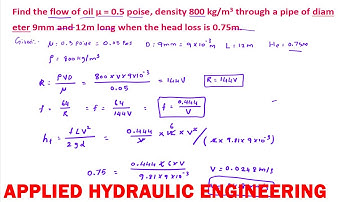 Find the flow of oil μ = 0.5 poise, density 800 kg/m³ through a pipe of diam
eter 9mm and 12m long when the head loss is 0.75m.
Given:- μ: 0.5 poise = 0.05 Pas D: 9mm = 9 x 10⁻³ m L = 12m He = 0.75m
ρ = 800 kg/m³
R = ρVD / μ = 800 x V x 9 x 10⁻³ / 0.05 = 144V R = 144V
f = 64 / R = f = 64 / 144V = f = 0.444 / V
hf = f L V² / 2gd = 0.444 / V x 6 x V² / (2 x 9.81 x 9 x 10⁻³)
0.75 = 0.444 x 6 x V / 9.81 x 9 x 10⁻³ V = 0.0248 m/s
APPLIED HYDRAULIC ENGINEERING